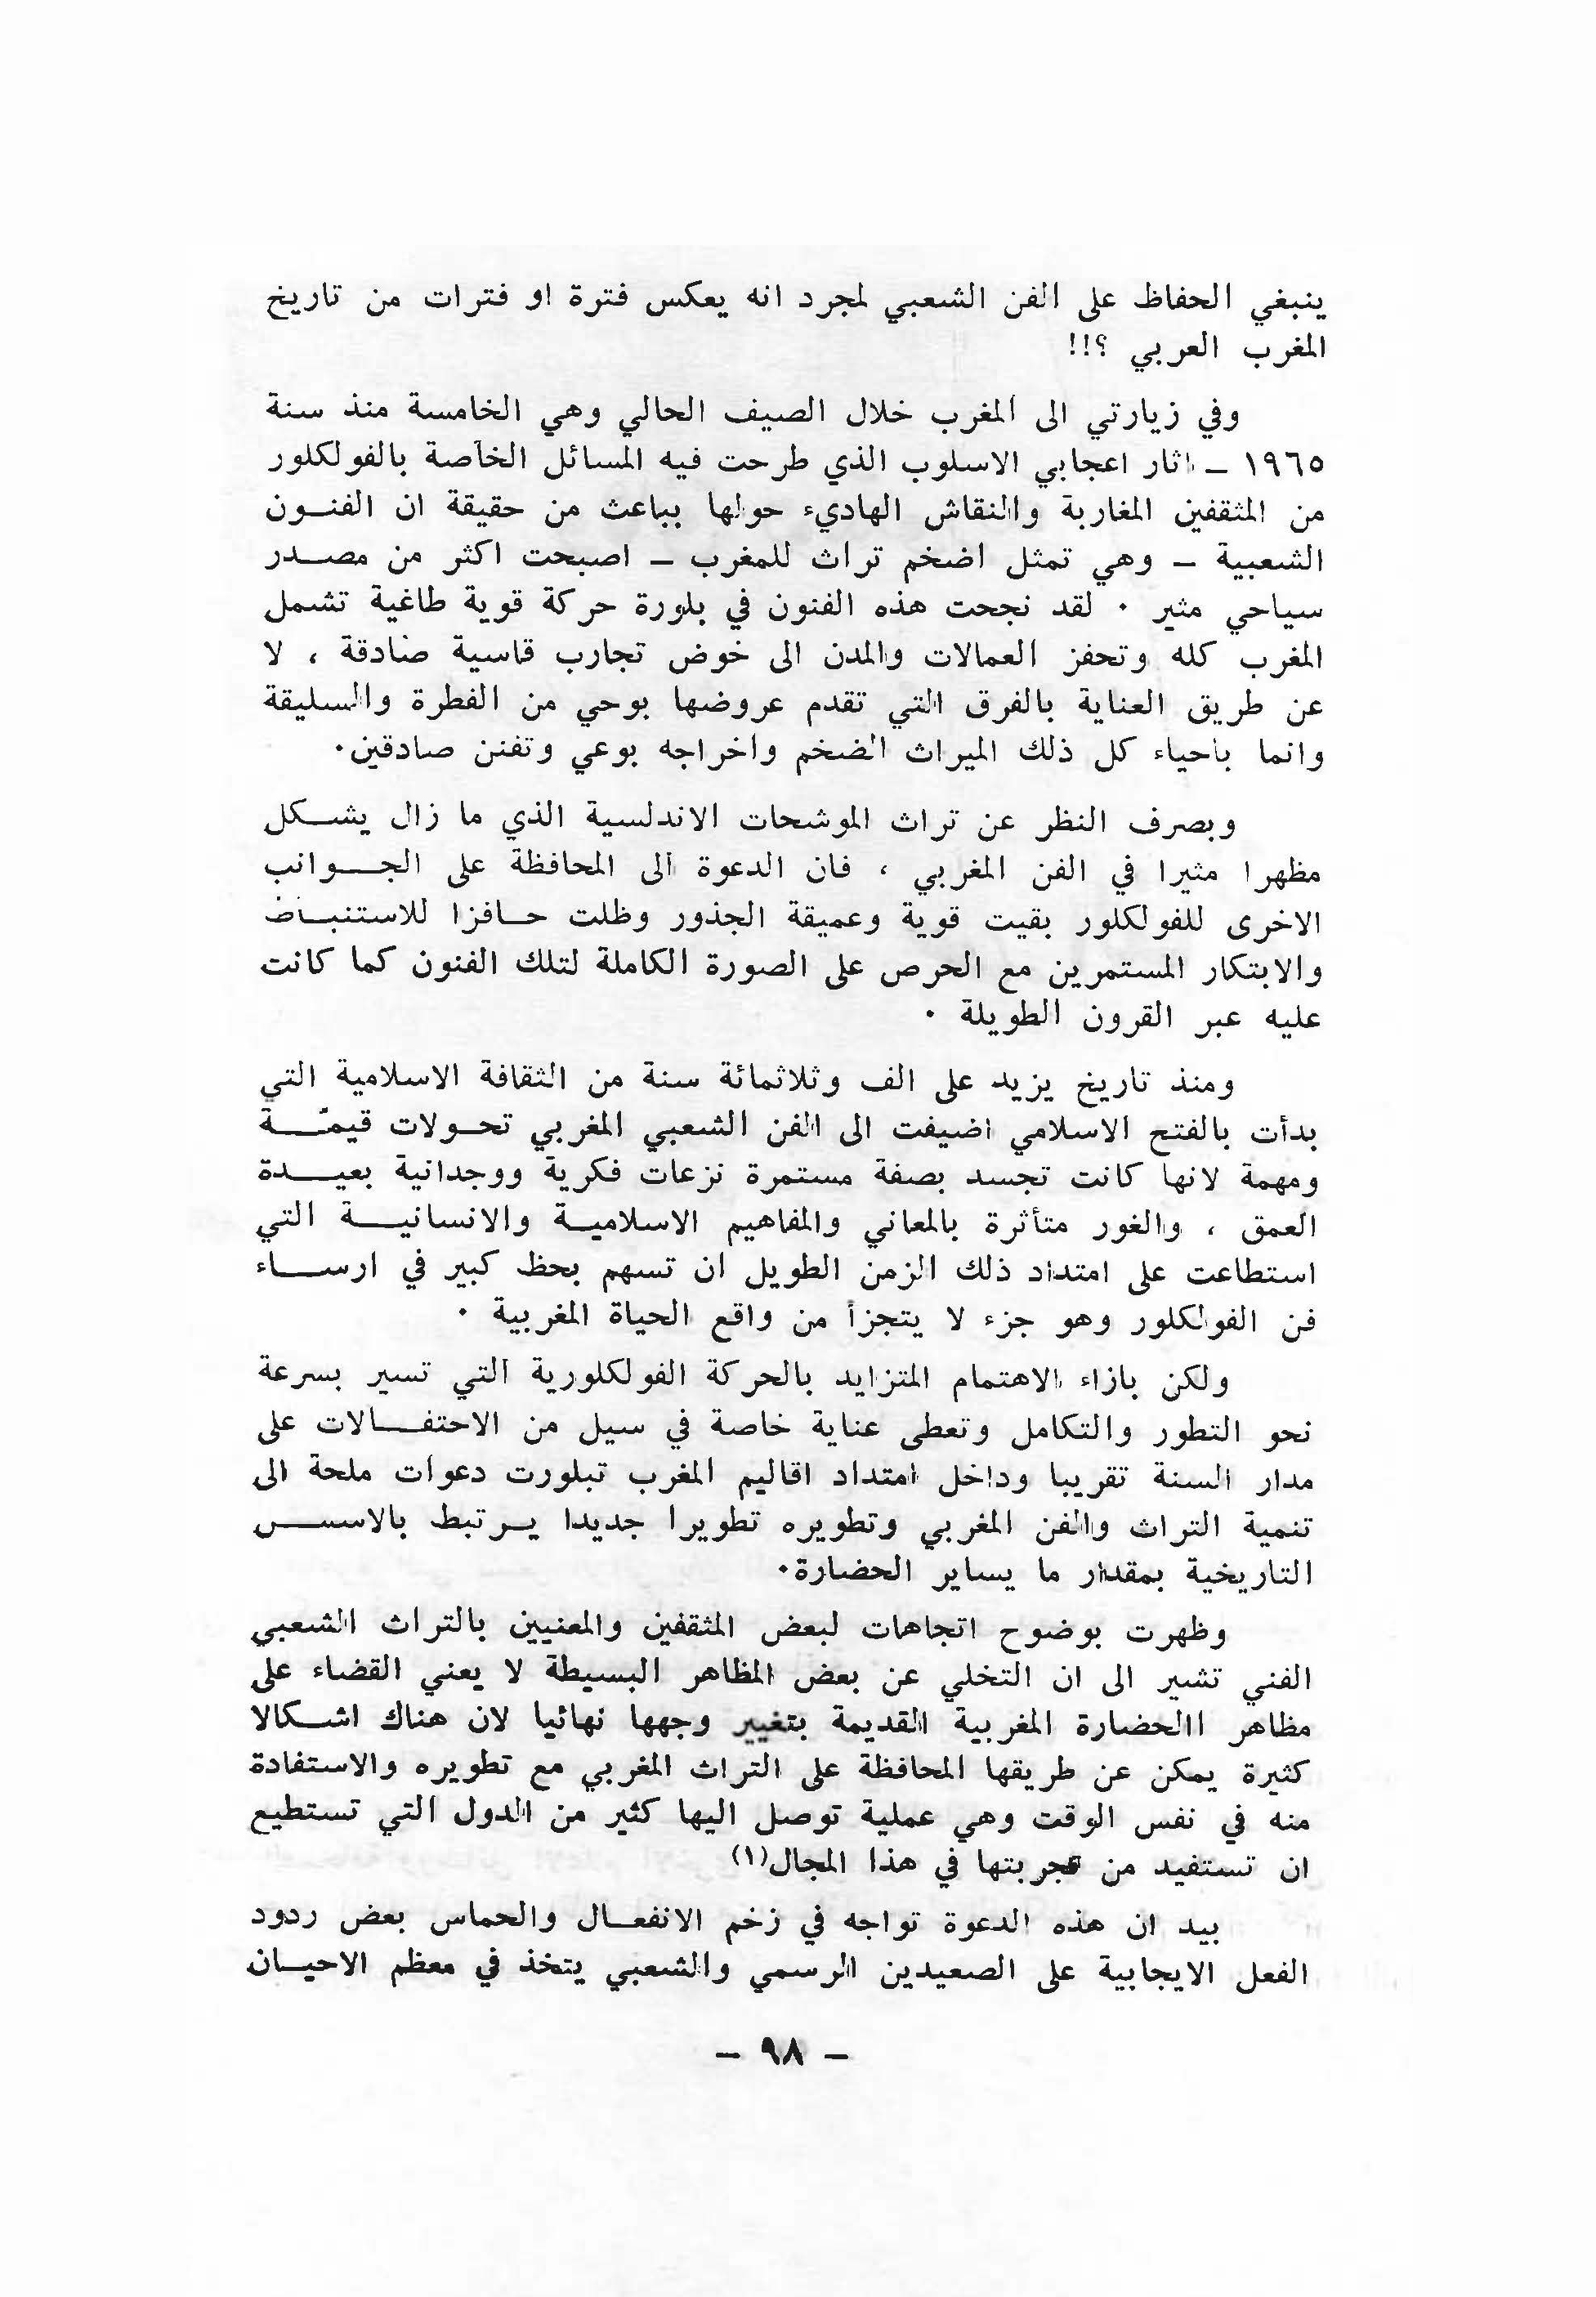 ينبغي الحفاظ على الفن الشعبي لمجرد انه يعكس فترة او فترات من تاريخ
المغرب العربي ؟!!
وفي زيارتي الى المغرب خلال الصيف الحالي وهي الخامسة منذ سنة
١٩٦٥ ــ اثار اعجابي الاسلوب الذي طرحت فيه المسائل الخاصة بالفولكلور
من المثقفين المغاربة والنقاش الهاديء حولها بباعث من حقيقة ان الفنـون
الشعبية ــ وهي تمثل اضخم تراث للمغرب ــ اصبحت اكثر من مصــدر
سياحي مثير ٠ لقد نجحت هذه الفنون في بلورة حركة قوية طاغية تشمل
المغرب كله وتحفز العمالات والمدن الى خوض تجارب قاسية صادقة ، لا
عن طريق العناية بالفرق التي تقدم عروضها بوحي من الفطرة والسليقة
وانما باحياء كل ذلك الميراث الضخم واخراجه بوعي وتفنن صادقين٠
وبصرف النظر عن تراث الموشحات الاندلسية الذي ما زال يشــكل
مظهرا مثيرا في الفن المغربي ، فان الدعوة الى المحافظة على الجـــوانب
الاخرى للفولكلور بقيت قوية وعميقة الجذور وظلت حــافزا للاستنبــاض
والابتكار المستمرين مع الحرص على الصورة الكاملة لتلك الفنون كما كانت
عليه عبر القرون الطويلة ٠
ومنذ تاريخ يزيد على الف وثلاثمائة سنة من الثقافة الاسلامية التي
بدأت بالفتح الاسلامي اضيفت الى الفن الشعبي المغربي تحــولات قيمّـــة
ومهمة لانها كانت تجسد بصفة مستمرة نزعات فكرية ووجدانية بعيـــدة
العمق ، والغور متأثرة بالمعاني والمفاهيم الاسلاميــة والانسانيـــة التي
استطاعت على امتداد ذلك الزمن الطويل ان تسهم بحظ كبير في ارســـاء
فن الفولكلور وهو جزء لا يتجزأ من واقع الحياة المغربية ٠
ولكن بازاء الاهتمام المتزايد بالحركة الفولكلورية التي تسير بسرعة
نحو التطور والتكامل وتعطى عناية خاصة في سيل من الاحتفـــالات على
مدار السنة تقريبا وداخل امتداد اقاليم المغرب تبلورت دعوات ملحة الى
تنمية التراث والفن المغربي وتطويره تطويرا جديدا يــرتبط بالاســـس
التاريخية بمقدار ما يساير الحضارة٠
وظهرت بوضوح اتجاهات لبعض المثقفين والمعنيين بالتراث الشعبي
الفني تشير الى ان التخلي عن بعض المظاهر البسيطة لا يعني القضاء على
مظاهر االحضارة المغربية القديمة بتغيير وجهها نهائيا لان هناك اشــكالا
كثيرة يمكن عن طريقها المحافظة على التراث المغربي مع تطويره والاستفادة
منه في نفس الوقت وهي عملية توصل اليها كثير من الدول التي تستطيع
ان تستفيد من تجربتها في هذا المجال(١)
بيد ان هذه الدعوة تواجه في زخم الانفعــال والحماس بعض ردود
الفعل الايجابية على الصعيدين الرسمي والشعبي يتخذ في معظم الاحيــان
ــ ٩٨ ــ